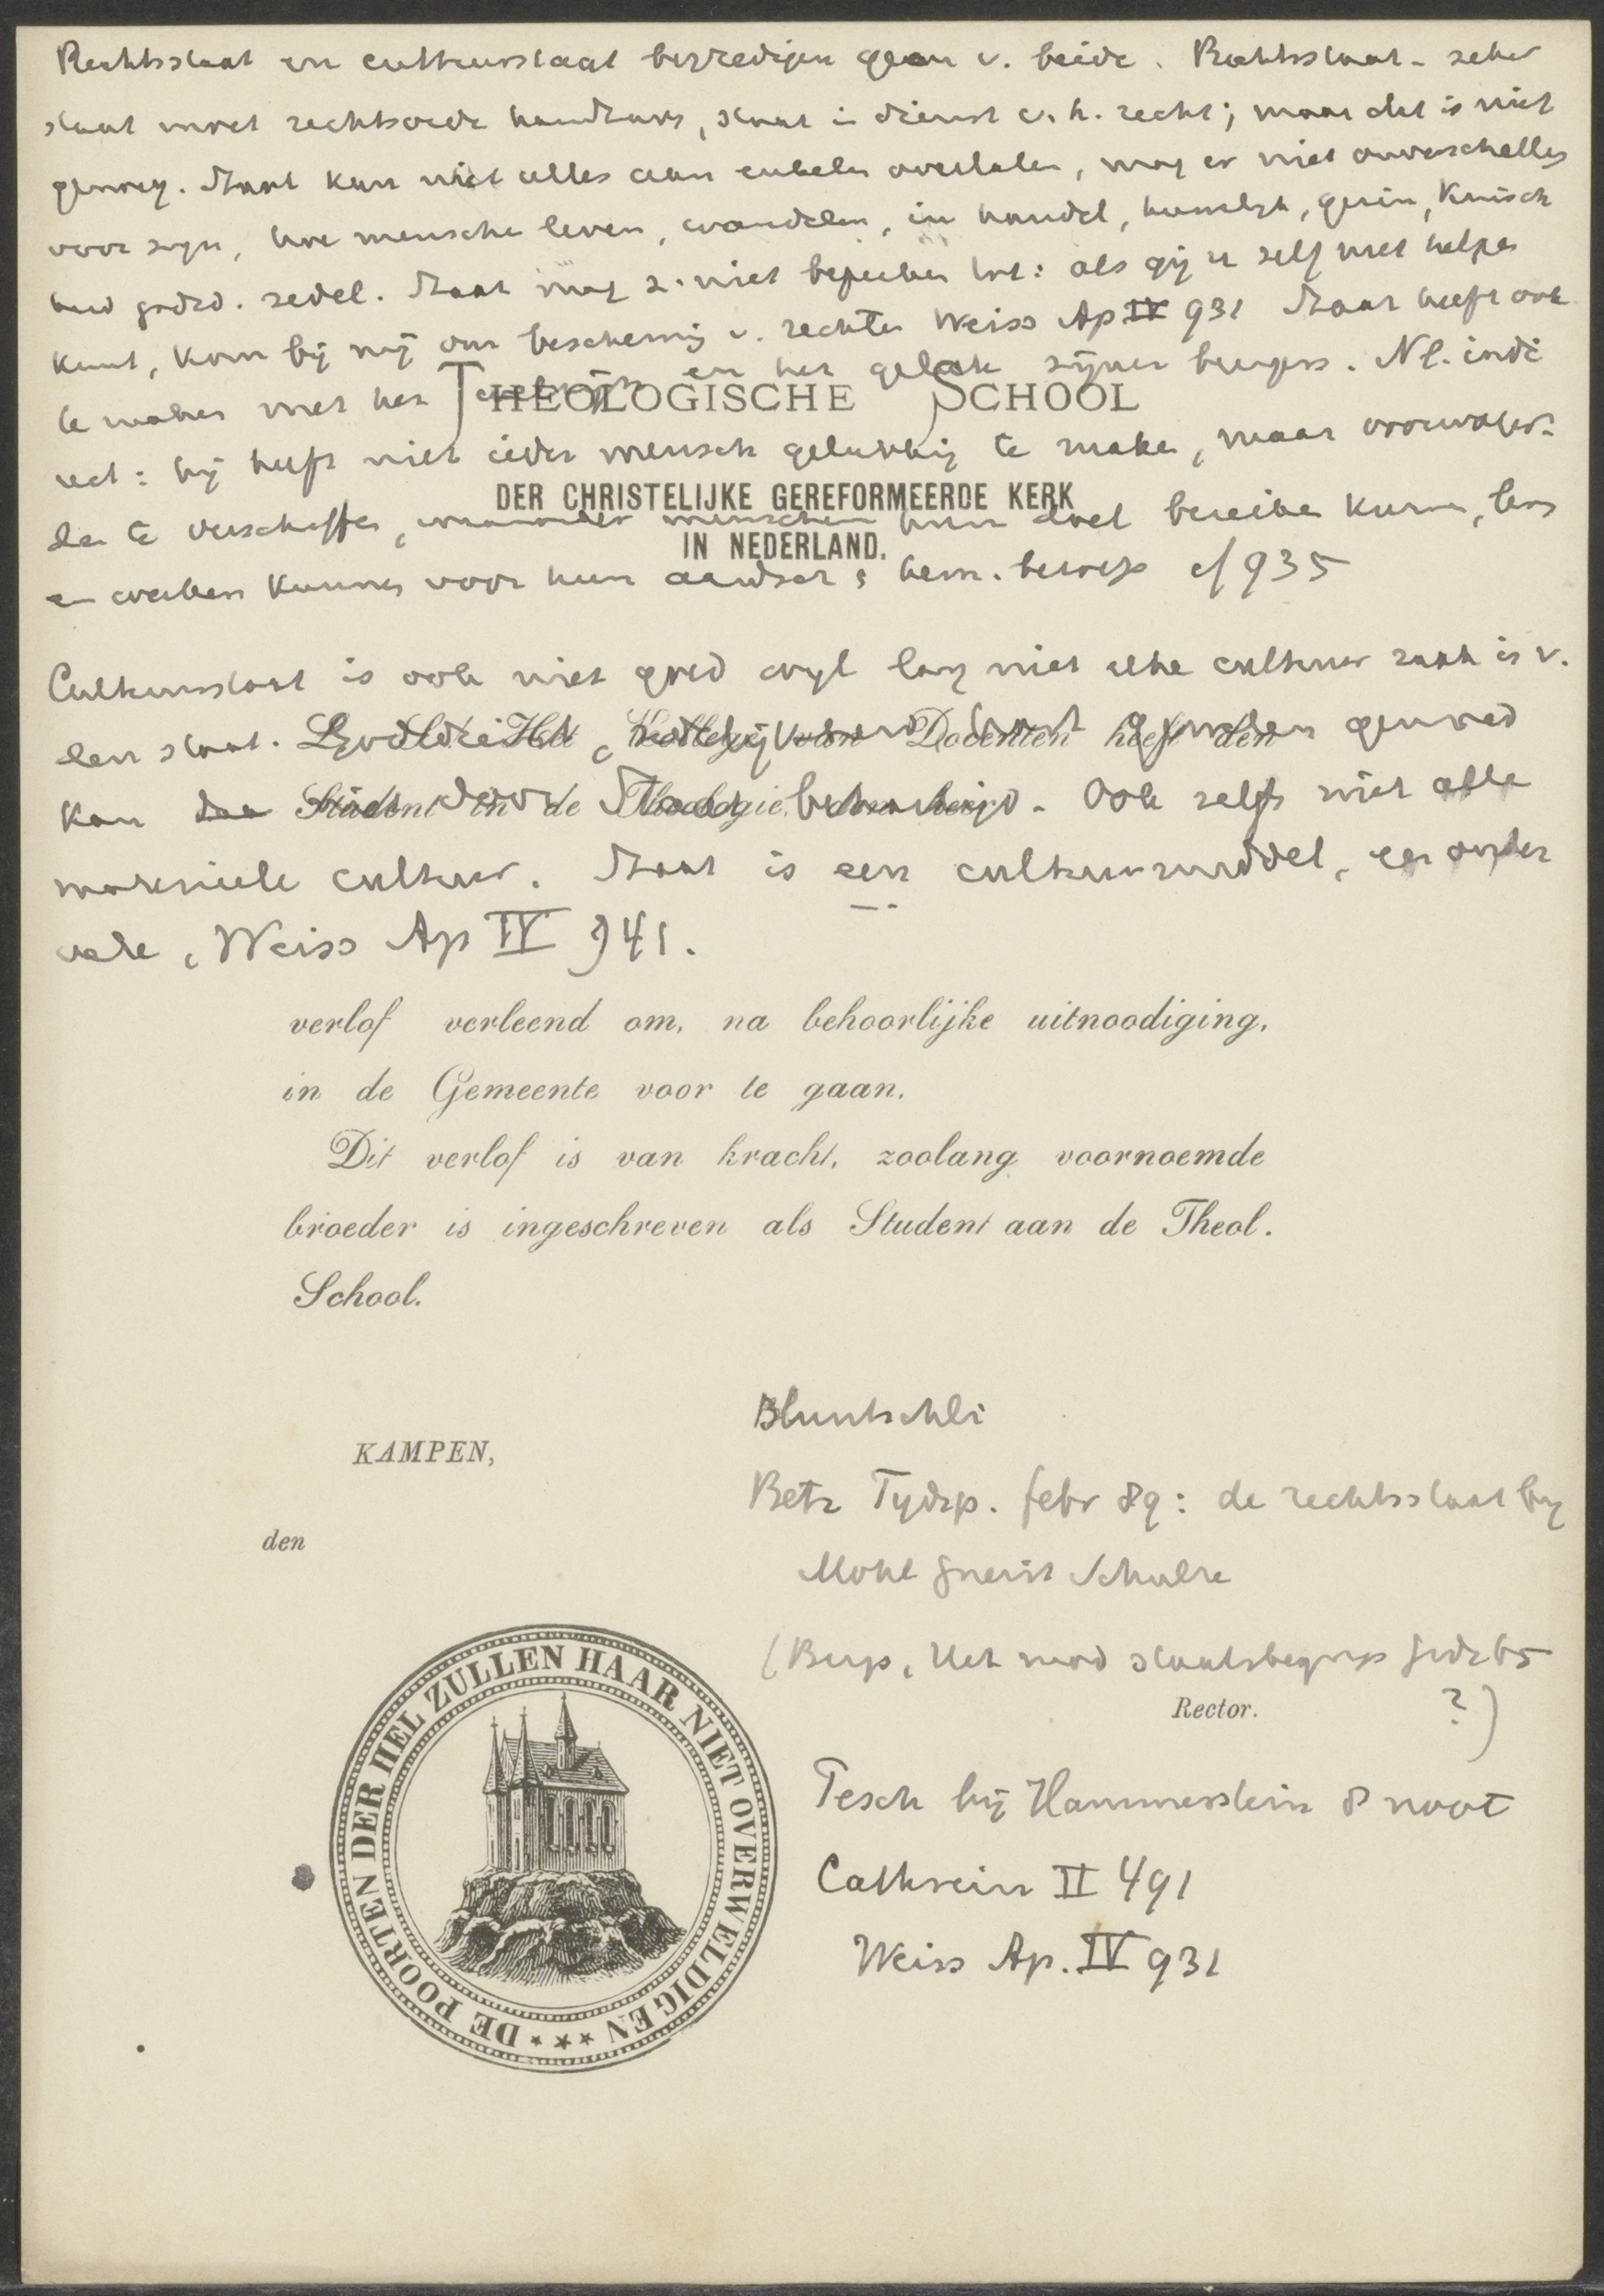 Rechtsstaat en cultuurstaat bevredigen geen v. beide. Rechtsstaat - zeker
staat moet rechtsorde handhaven, staat in dienst v. h. recht; maar dat is niet
genoeg. Staat kan niet alles aan enkelen overlaten, mag er niet onverschillig
voor zijn, hoe menschen leven, wandelen, in handel, huwelijk, gezin, kuisch
heid godsd. zedel. Staat mag z. niet beperken tot: als gij u zelf niet helpen
kunt, kom bij mij om bescherming v. rechten Weiss Ap IV 931 Staat heeft ook
te maken met het en het geluk zijner burgers. Nl. indi
THEOLOGISCHE SCHOOL
rect: hij heeft niet ieder mensch gelukkig te maken, maar voorwaar-
DER CHRISTELIJKE GEREFORMEERDE KERK
den te verschaffen, waaronder menschen hun doel bereiken kunnen,
IN NEDERLAND.
en werken kunnen voor hun aardsch & hem. beroep cf 935
Cultuurstaat is ook niet goed wijl lang niet alle cultuur zaak is v.
den staat. Godsdienst, genoeg
Het Kollegie van Docenten heeft den
kan niet door Staat Ook zelfs niet alle
Student in de Theologie, den heer
materiele cultuur. Staat is een cultuurmiddel, een onder
vele, Weiss Ap IV 941.
verlof verleend om, na behoorlijke uitnoodiging,
in de Gemeente voor te gaan.
Dit verlof is van kracht, zoolang voornoemde
broeder is ingeschreven als Student aan de Theol.
School.
Bluntschli
KAMPEN,
Betz Tijdsp. febr 89: de rechtsstaat bij
den
Mohl Gneist Schulze
(Buys, Het mod staatsbegrip Gids 65
Rector.
?)
DE POORTEN DER HEL ZULLEN HAAR NIET OVERWELDIGEN
Pesch bij Hammerstein 8 noot
Cathrein II 491
Weiss Ap. IV 931